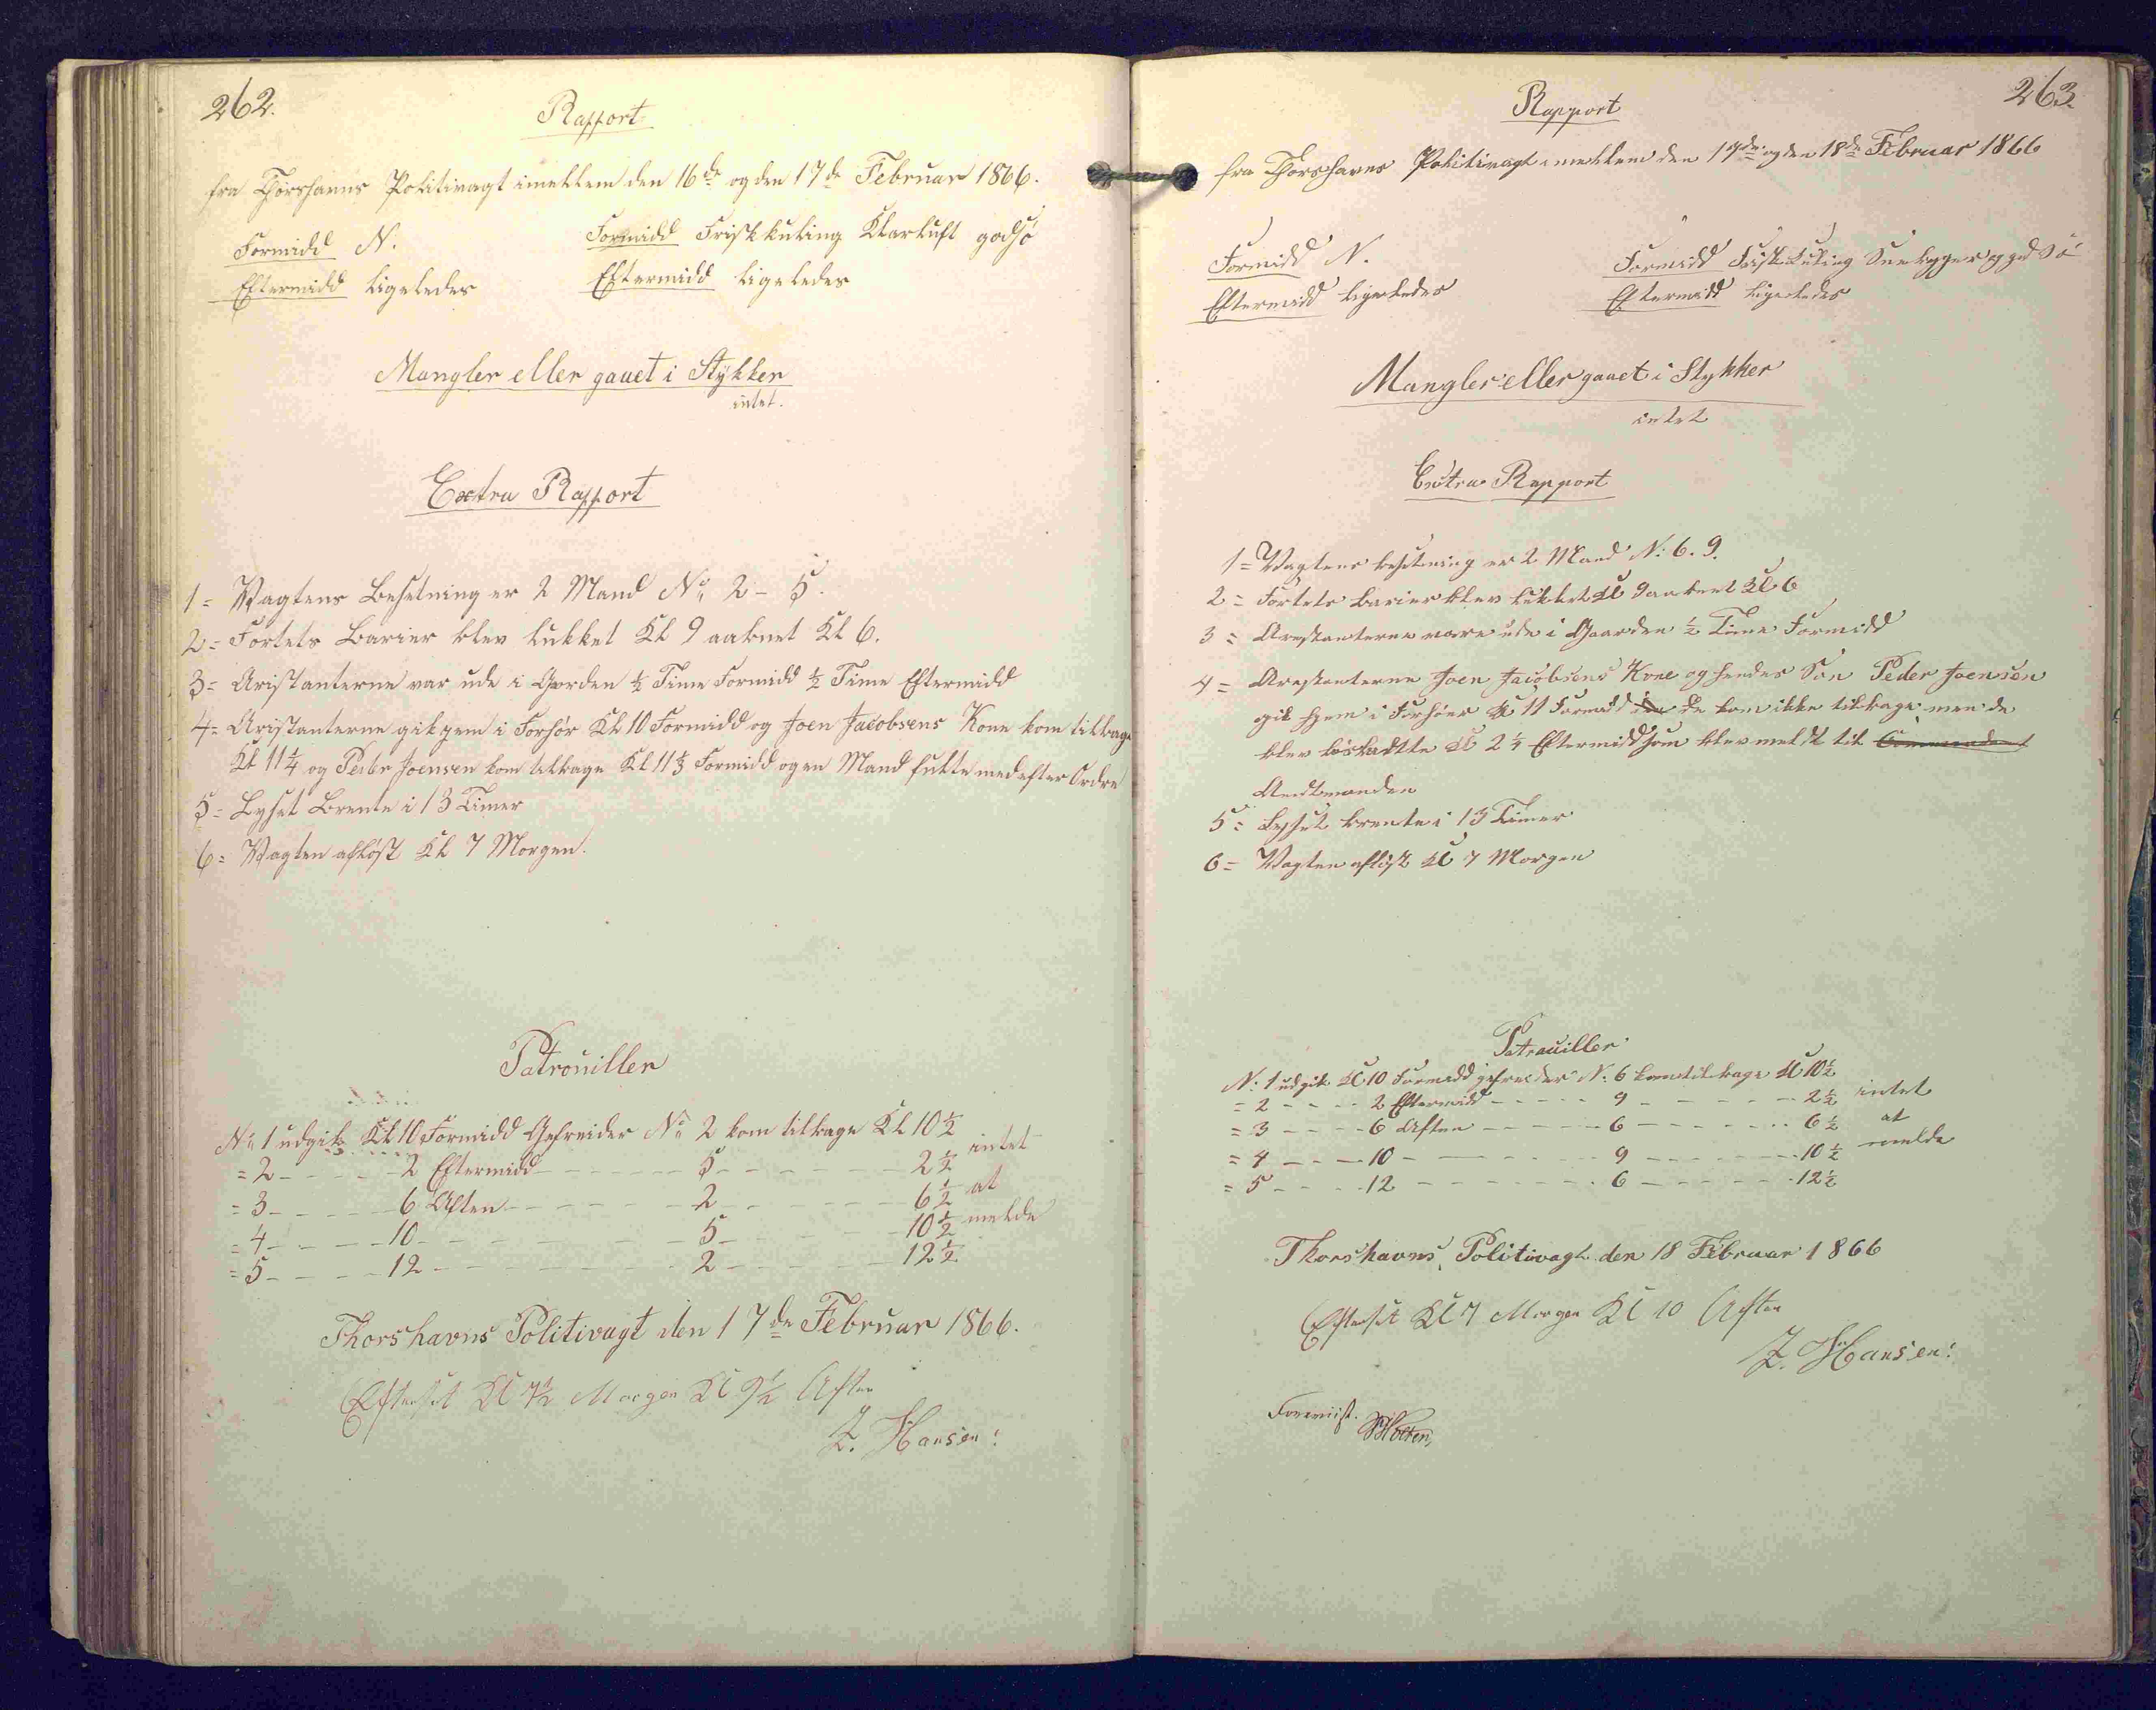 262.
Rapport
fra Thorshavns Politivagt imellem den 16de og den 17de Februar 1866.
Formidd N. Formidd Friskkuling Klarluft godsö
Eftermidd ligeledes Eftermidd ligeledes
Mangler eller gaaet i Stykker
intet.
Extra Rapport
1= Vagtens Besetning er 2 Mand No 2 - 5.
2= Fortets Barier blev lukket Kl 9 aaknet Kl 6.
3= Aristanterne var ude i Gorden ½ Time Formidd ½ Time Eftermidd
4= Aristanterne gik hjem i Forhör Kl 10 Formidd og Joen Jacobsens Kone kom tilbage
Kl 11¼ og Peder Joensen kom tilbage Kl 11½ Formidd og en Mand fulte med efter Ordre
5= Lyset Brente i 13 Timer
6= Vagten aflöst Kl 7 Morgen.
Patrouiller
No 1 udgik Kl 10 Formidd Gefreider No 2 kom tilbage Kl 10½
= 2 - - - - 2 Eftermidd - - - - - 5 - - - - - - 2½ intet
= 3 - - - - 6 Aften - - - - - - 2 - - - - - - 6½ at
= 4 - - - - 10 - - - - - - - - 5 - - - - - - 10½ melde
= 5 - - - - 12 - - - - - - - - 2 - - - - - - 12½
Thorshavns Politivagt den 17de Februar 1866.
Efterset Kl 7½ Morgen Kl 9½ Aften
Z. Hansen:
263.
Rapport
fra Thorshavns Politivagt imellem den 17de og den 18de Februar 1866
Formidd N. Formidd Friskkuling Sneebyger og god Sö
Eftermidd ligeledes Eftermidd ligeledes
Mangler eller gaaet i Stykker
intet
Extra Rapport
1= Vagtens besetning er 2 Mand N: 6. 9.
2= Fortets barier blev lukket Kl 9 aaknet Kl 6
3= Arestanterne vare ude i Gaarden ½ Time Formidd
4= Arestanterne Joen Jacobsens Kone og hendes Sön Peder Joensen
gik hjem i Forhöer Kl 11 Formidd de kom ikke tilbage men de
blev löslatte Kl 2¼ Eftermidd som blev meldt til Commendant
Amtmanden
5= Lyset brente i 13 Timer
6= Vagten aflöst Kl 7 Morgen
Patrauiller
N: 1 udgik Kl 10 Formidd gefreider N: 6 kom tilbage Kl 10½
= 2 - - - - 2 Eftermidd - - - - - 9 - - - - - - 2½ intet
= 3 - - - - 6 Aften - - - - - - 6 - - - - - - 6½ at
= 4 - - - - 10 - - - - - - - - 9 - - - - - - 10½ melde
= 5 - - - - 12 - - - - - - - - 6 - - - - - - 12½
Thorshavns, Politivagt den 18 Februar 1866
Efterset Kl 7 Morgen Kl 10 Aften
Z. Hansen:
Foreviist.
HCMüller